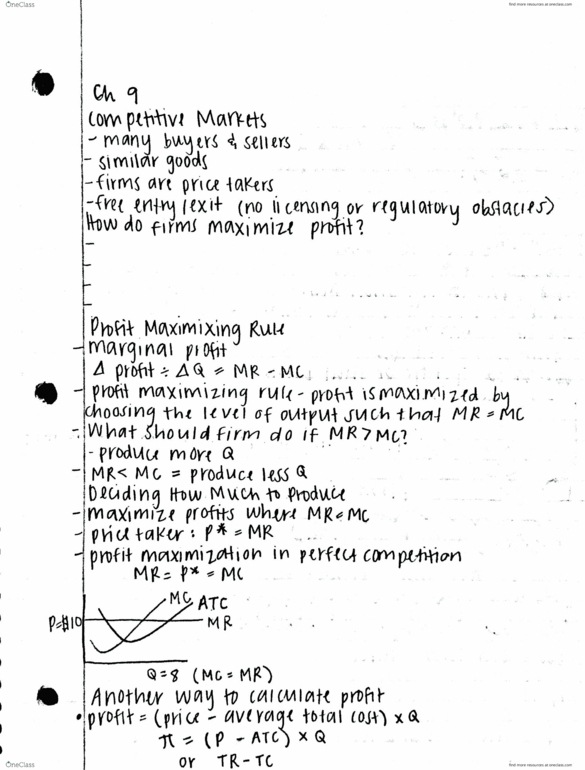 OneClass
find more resources at oneclass.com
Ch 9
Competitive Markets
- many buyers & sellers
- similar goods
- firms are price takers
- free entry/exit (no licensing or regulatory obstacles)
How do firms maximize profit?
-
-
-
-
Profit Maximixing Rule
- marginal profit
Δ profit ÷ ΔQ = MR - MC
- profit maximizing rule - profit is maximized by
choosing the level of output such that MR = MC
- What should firm do if MR > MC?
- produce more Q
- MR < MC = produce less Q
Deciding How Much to Produce
- maximize profits where MR=MC
- price taker: P* = MR
- profit maximization in perfect competition
MR = P* = MC
MC ATC
P=$10 MR
Q=8 (MC = MR)
Another way to calculate profit
• profit = (price - average total cost) x Q
π = (P - ATC) x Q
or TR-TC
OneClass
find more resources at oneclass.com